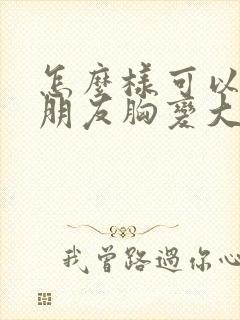 怎麼樣可以
朋友胸變大
我曾路過你心